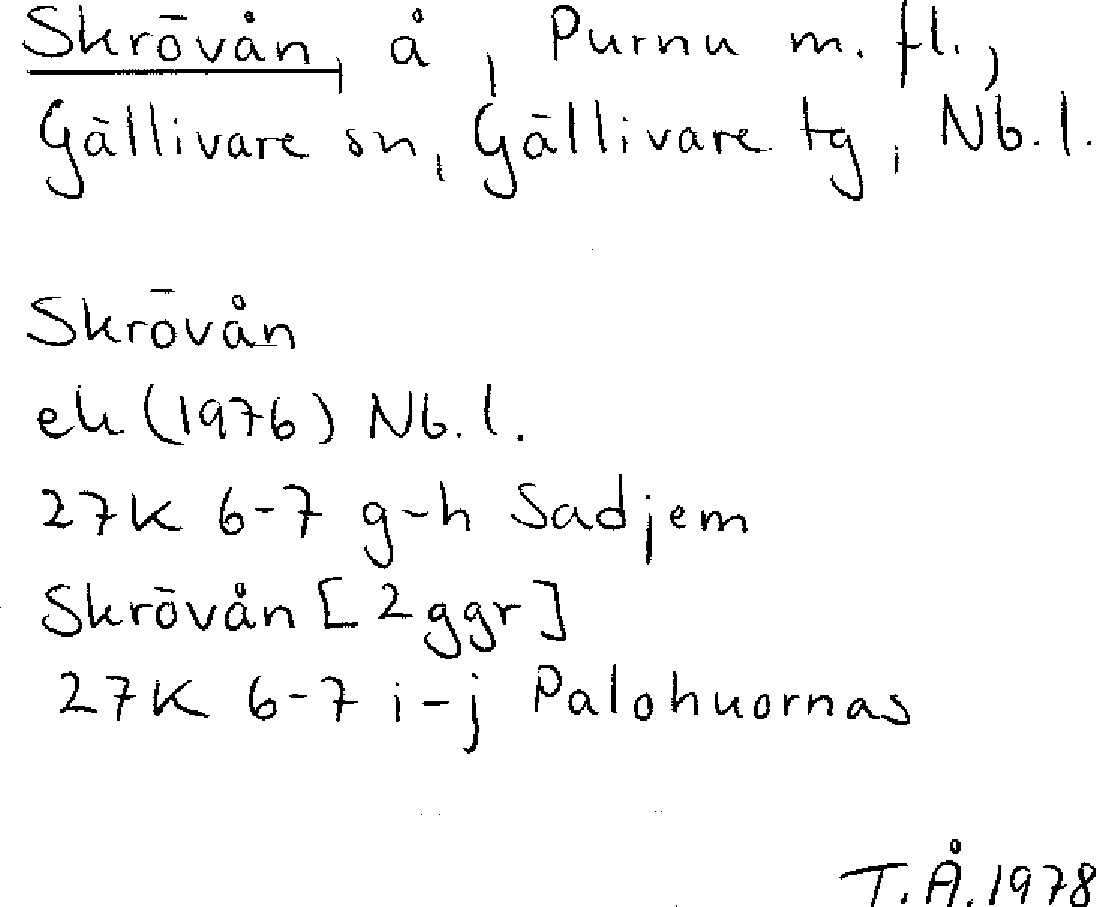 Skrövån, å, Purnu m. fl.,
Gällivare sn, Gällivare tg, Nb. l.
Skrövån
ek (1976) Nb. l.
27K 6-7 g-h Sadjem
Skrövån [2 ggr]
27K 6-7 i-j Palohuornas
T. Å. 1978